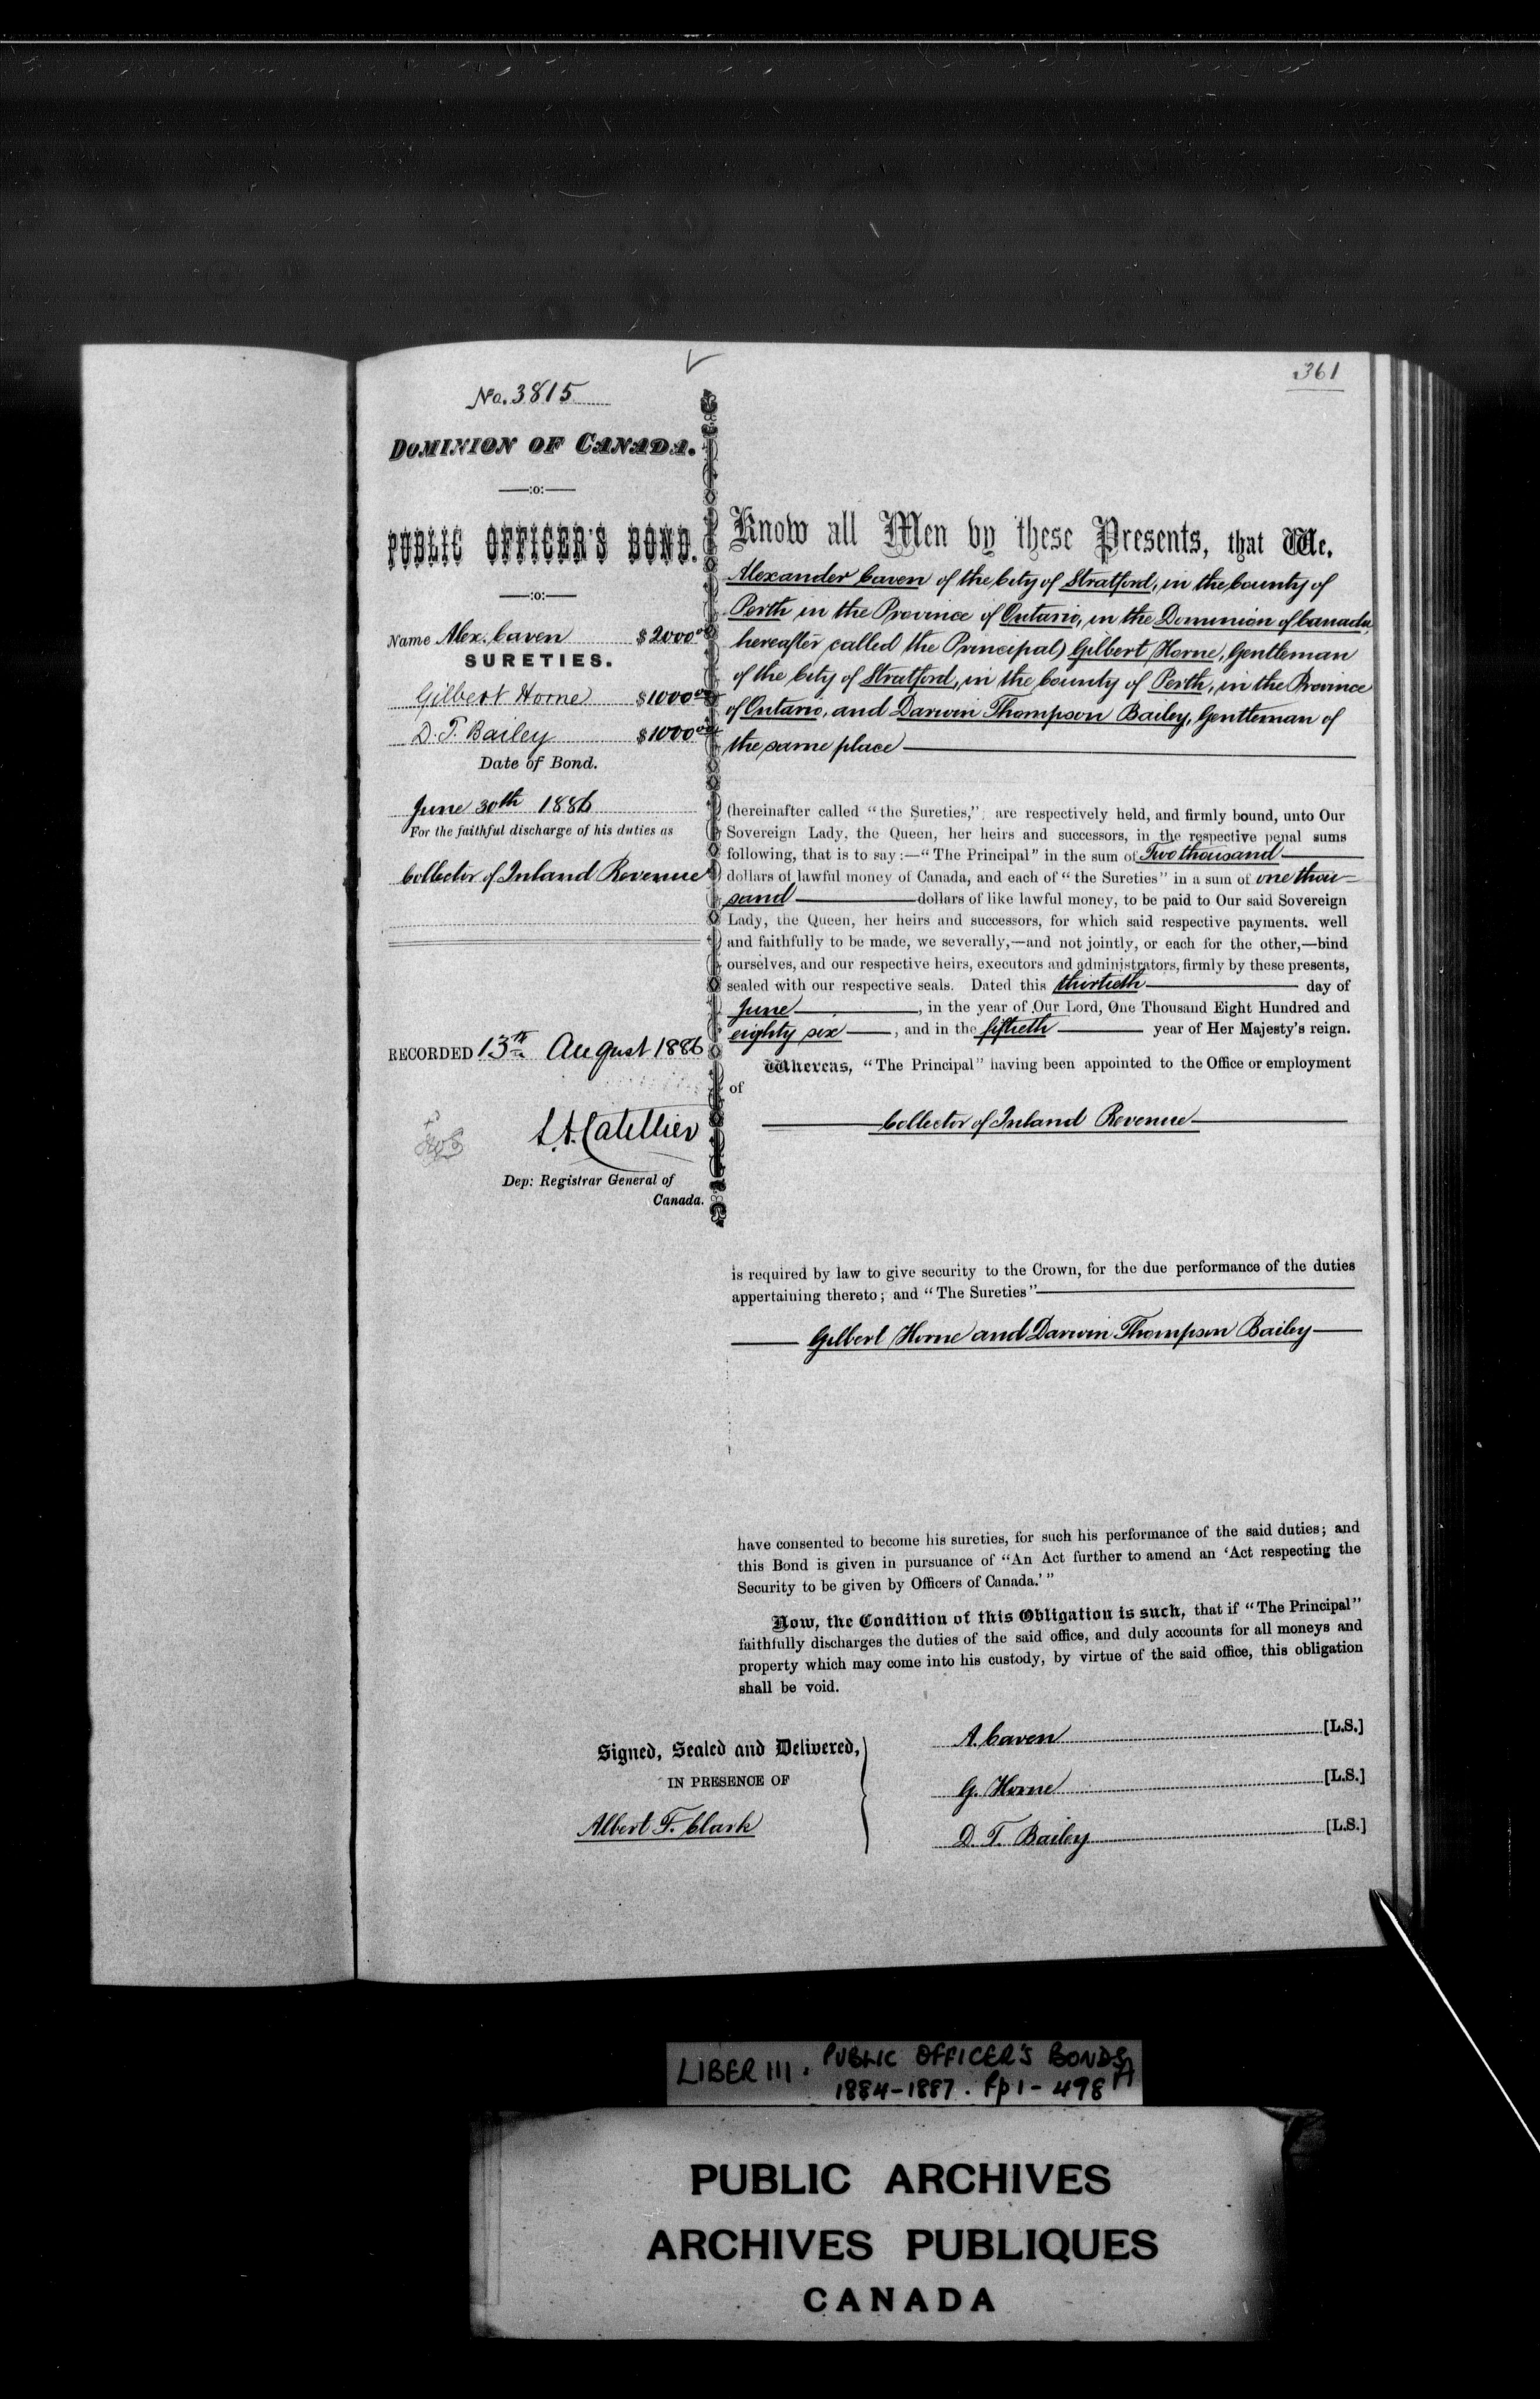 361
No. 3815
DOMINION OF CANADA.
—:o:—
PUBLIC OFFICER'S BOND.
—:o:—
Name Alex. Caven $2000 00
SURETIES.
Gilbert Horne $1000 00
D. T. Bailey $1000 00
Date of Bond.
June 30th 1886
For the faithful discharge of his duties as
Collector of Inland Revenue
RECORDED 13th August 1886
L.A. Catellier
Dep: Registrar General of
Canada.
Know all Men by these Presents, that We,
Alexander Caven of the City of Stratford, in the County of
Perth in the Province of Ontario, in the Dominion of Canada,
hereafter called the Principal) Gilbert Horne, Gentleman
of the City of Stratford, in the County of Perth, in the Province
of Ontario, and Darwin Thompson Bailey, Gentleman of
the same place
(hereinafter called "the Sureties," are respectively held, and firmly bound, unto Our
Sovereign Lady, the Queen, her heirs and successors, in the respective penal sums
following, that is to say :—"The Principal" in the sum of Two thousand
dollars of lawful money of Canada, and each of "the Sureties" in a sum of one thou=
sand dollars of like lawful money, to be paid to Our said Sovereign
Lady, the Queen, her heirs and successors, for which said respective payments. well
and faithfully to be made, we severally,—and not jointly, or each for the other,—bind
ourselves, and our respective heirs, executors and administrators, firmly by these presents,
sealed with our respective seals. Dated this thirtieth day of
June, in the year of Our Lord, One Thousand Eight Hundred and
eighty six, and in the fiftieth year of Her Majesty's reign.
Whereas, "The Principal" having been appointed to the Office or employment
of
Collector of Inland Revenue
is required by law to give security to the Crown, for the due performance of the duties
appertaining thereto; and "The Sureties"
Gilbert Horne and Darwin Thompson Bailey
have consented to become his sureties, for such his performance of the said duties; and
this Bond is given in pursuance of "An Act further to amend an 'Act respecting the
Security to be given by Officers of Canada.'"
Now, the Condition of this Obligation is such, that if "The Principal"
faithfully discharges the duties of the said office, and duly accounts for all moneys and
property which may come into his custody, by virtue of the said office, this obligation
shall be void.
Signed, Sealed and Delivered,
IN PRESENCE OF
Albert F. Clark
A. Caven [L.S.]
G. Horne [L.S.]
D. T. Bailey [L.S.]
LIBER 111. PUBLIC OFFICER'S BONDS
1884-1887. pp 1-498
PUBLIC ARCHIVES
ARCHIVES PUBLIQUES
CANADA